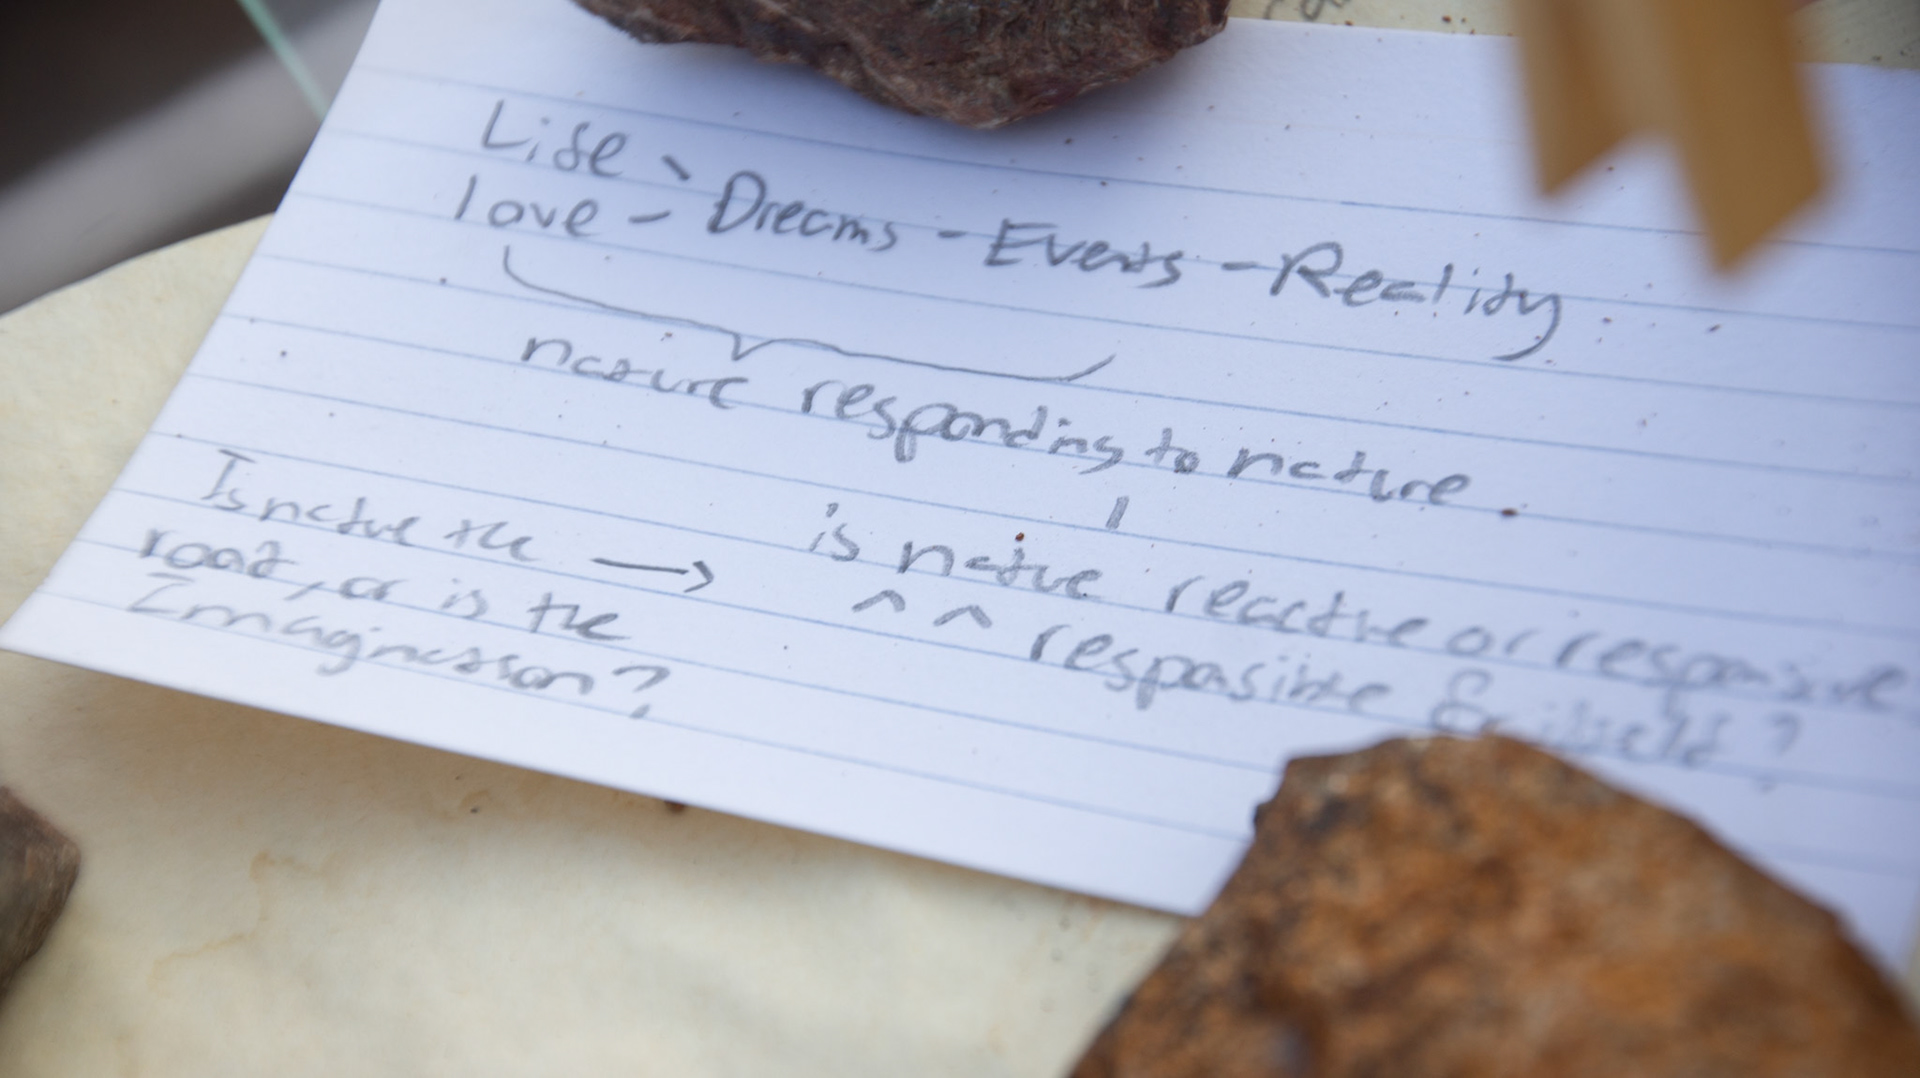 Life
love - Dreams - Events - Reality
nature responding to nature.
is nature reactive or responsive
^ ^ responsible for itself?
Is nature the →
root, or is the
Imagination?